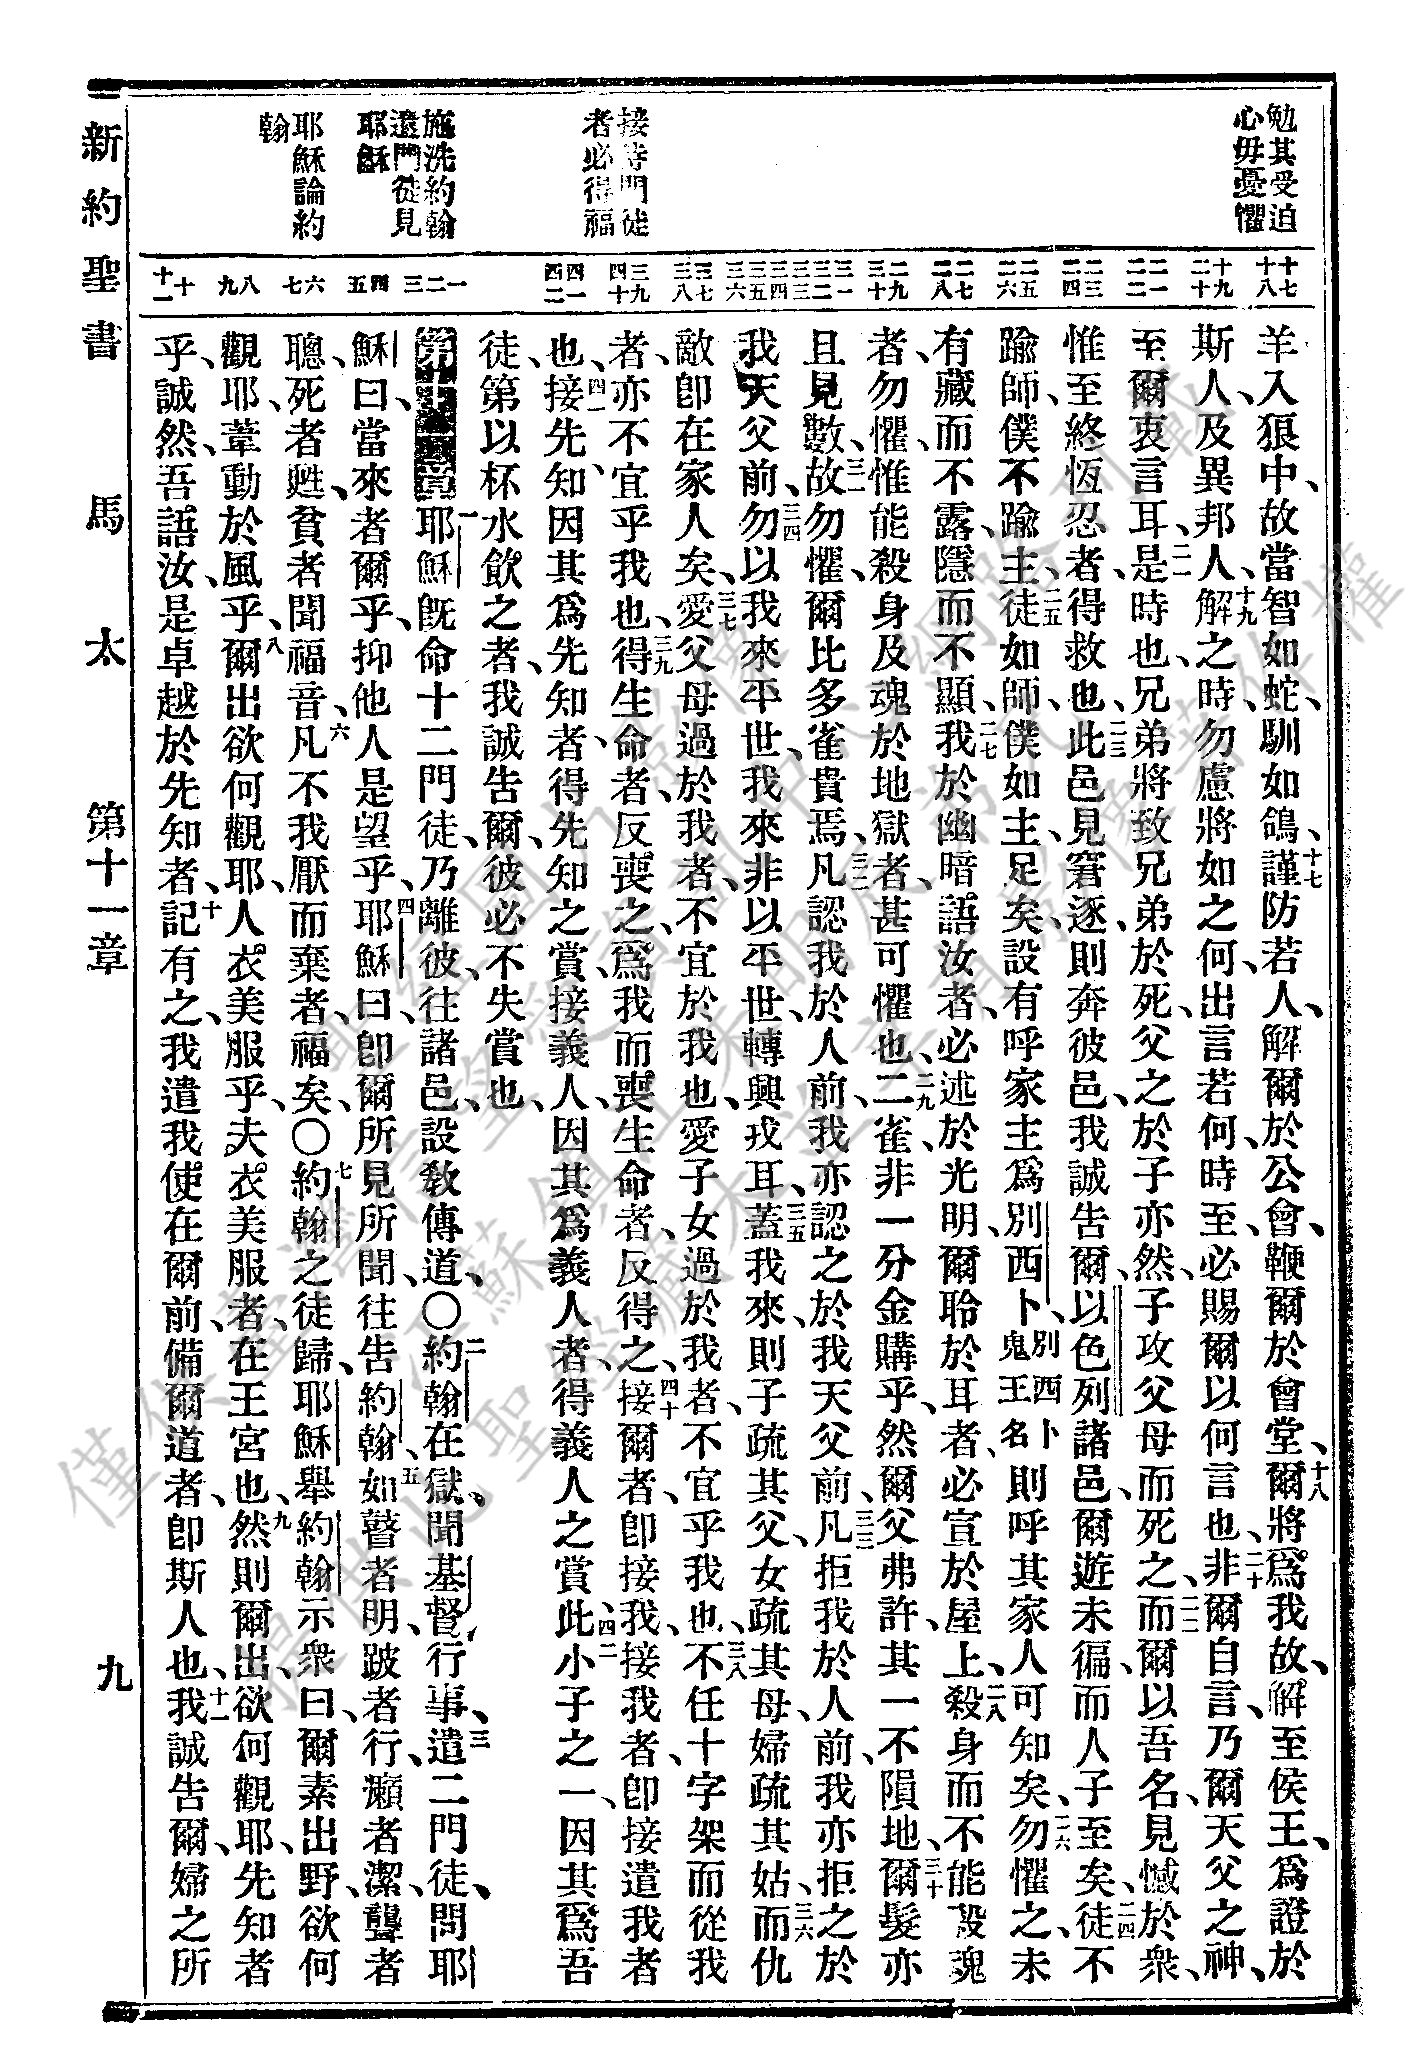 勉其受迫
心毋憂懼
接待門徒
者必得福
施洗約翰
遣門徒見
耶穌
耶穌論約
翰
十七
十八
十九
二十
二一
二二
二三
二四
二五
二六
二七
二八
二九
三十
三一
三二
三三
三四
三五
三六
三七
三八
三九
四十
四一
四二
一
二
三
四
五
六
七
八
九
十
十一
羊入狼中、故當智如蛇、馴如鴿、十七謹防若人、解爾於公會、鞭爾於會堂、十八爾將爲我故、解至侯王、爲證於
斯人、及異邦人、十九解之時、勿慮將如之何、出言若何、時至、必賜爾以何言也、二十非爾自言、乃爾天父之神、
至爾衷言耳、二一是時也、兄弟將致兄弟於死、父之於子亦然、子攻父母而死之、二二而爾以吾名、見憾於衆、
惟至終恆忍者、得救也、二三此邑見窘逐、則奔彼邑、我誠告爾、以色列諸邑、爾遊未徧、而人子至矣、二四徒不
踰師、僕不踰主、二五徒如師、僕如主、足矣、設有呼家主爲別西卜、別西卜鬼王名則呼其家人可知矣、二六勿懼之、未
有藏而不露、隱而不顯、二七我於幽暗語汝者、必述於光明、爾聆於耳者、必宣於屋上、二八殺身而不能殺魂
者、勿懼、惟能殺身及魂於地獄者、甚可懼也、二九二雀、非一分金購乎、然爾父弗許、其一不隕地、三十爾髮亦
且見數、三一故勿懼、爾比多雀貴焉、三二凡認我於人前、我亦認之於我天父前、三三凡拒我於人前、我亦拒之於
我天父前、三四勿以我來平世、我來非以平世、轉興戎耳、三五蓋我來、則子疏其父、女疏其母、婦疏其姑、三六而仇
敵卽在家人矣、三七愛父母過於我者、不宜於我也、愛子女過於我者、不宜乎我也、三八不任十字架而從我
者、亦不宜乎我也、三九得生命者、反喪之、爲我而喪生命者、反得之、四十接爾者、卽接我、接我者、卽接遣我者
也、四一接先知、因其爲先知者、得先知之賞、接義人、因其爲義人者、得義人之賞、四二此小子之一、因其爲吾
徒、第以杯水飲之者、我誠告爾、彼必不失賞也、
第十一章一耶穌旣命十二門徒、乃離彼、往諸邑、設敎傳道、〇二約翰在獄、聞基督行事、三遣二門徒、問耶
穌曰、當來者爾乎、抑他人是望乎、四耶穌曰、卽爾所見所聞、往告約翰、五如瞽者明、跛者行、癩者潔、聾者
聰、死者甦、貧者聞福音、六凡不我厭而棄者、福矣、〇七約翰之徒歸、耶穌舉約翰示衆曰、爾素出野、欲何
觀耶、葦動於風乎、八爾出欲何觀耶、人衣美服乎、夫衣美服者、在王宮也、九然則爾出、欲何觀耶、先知者
乎、誠然、吾語汝、是卓越於先知者、十記有之、我遣我使、在爾前、備爾道者、卽斯人也、十一我誠告爾、婦之所
新約聖書 馬太 第十一章 九